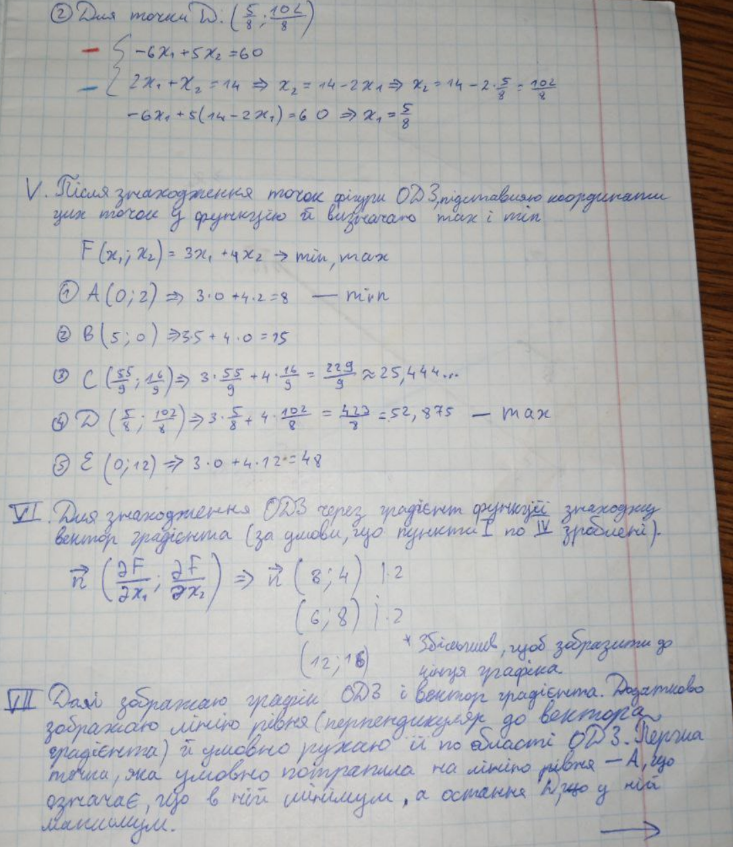 ② Для точки D. (5/8; 102/8)
-6x₁+5x₂=60
2x₁+x₂=14 ⇒ x₂=14-2x₁ ⇒ x₂=14-2·5/8=102/8
-6x₁+5(14-2x₁)=60 ⇒ x₁=5/8
V. Після знаходження точок фігури ОДЗ, підставляю координати
цих точок у функцію й визначаю max і min
F(x₁; x₂)=3x₁+4x₂ → min, max
① A(0;2) ⇒ 3·0+4·2=8 — min
② B(5;0) ⇒ 3·5+4·0=15
③ C(55/9; 16/9) ⇒ 3·55/9+4·16/9=229/9≈25,444...
④ D(5/8; 102/8) ⇒ 3·5/8+4·102/8=423/8=52,875 — max
⑤ E(0;12) ⇒ 3·0+4·12=48
VI. Для знаходження ОДЗ через градієнт функції знаходжу
вектор градієнта (за умови, що пункти I по IV зроблені).
n⃗ (∂F/∂x₁; ∂F/∂x₂) ⇒ n⃗ (3; 4) |·2
(6; 8) |·2
(12; 16)
* Збільшив, щоб зобразити до
кінця графіка
VII Далі зображаю графік ОДЗ і вектор градієнта. Додатково
зображаю лінію рівня (перпендикуляр до вектора
градієнта) й умовно рухаю її по області ОДЗ. Перша
точка, яка умовно потрапила на лінію рівня — A, що
означає, що в ній мінімум, а остання що у ній
максимум.